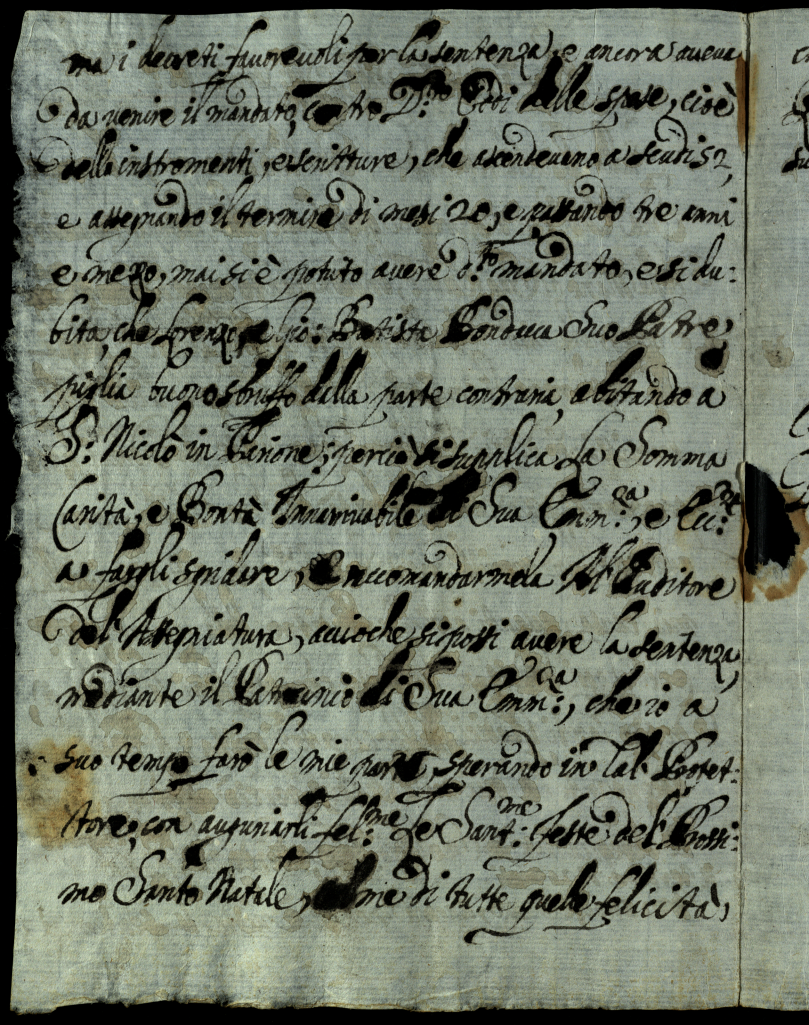 ma i decreti favorevoli per la sentenza, e ancora aveva
da venire il mandato, contro D.to Oddi delle spese, cioè
delli instromenti, e scritture, che ascendevano a scudi 52,
e assegnando il termine di mesi 20, e passando tre anni
e mezo, mai si è potuto avere d.to mandato, e si du:
bita, che Lorenzo, e Gio: Batista Bonducca Suo Patre
piglia buono sbruffo dalla parte contraria, abitando a
S: Nicolò in Parione: perciò si supplica La Somma
Carità, e Bontà Innarivabile di Sua Emin:za, e Ecc:za
a fargli sgridare, e raccomandarmela Al' Auditore
del' Assegniatura, accioche si possi avere la sentenza,
mediante il Patrinio di Sua Emin:za, che io a
suo tempo farò le mie parti, sperando in tal' Protet:
tore, con auguriarli fel:me Le Sant:me feste del' Prossi:
mo Santo Natale, colme di tutte quelle felicità,